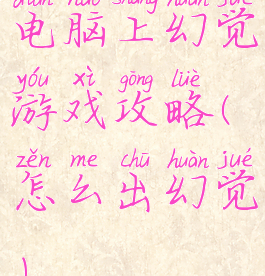 diàn nǎo shàng huàn jué
电脑上幻觉
yóu xì gōng lüè
游戏攻略(
zěn me chū huàn jué
怎么出幻觉
)